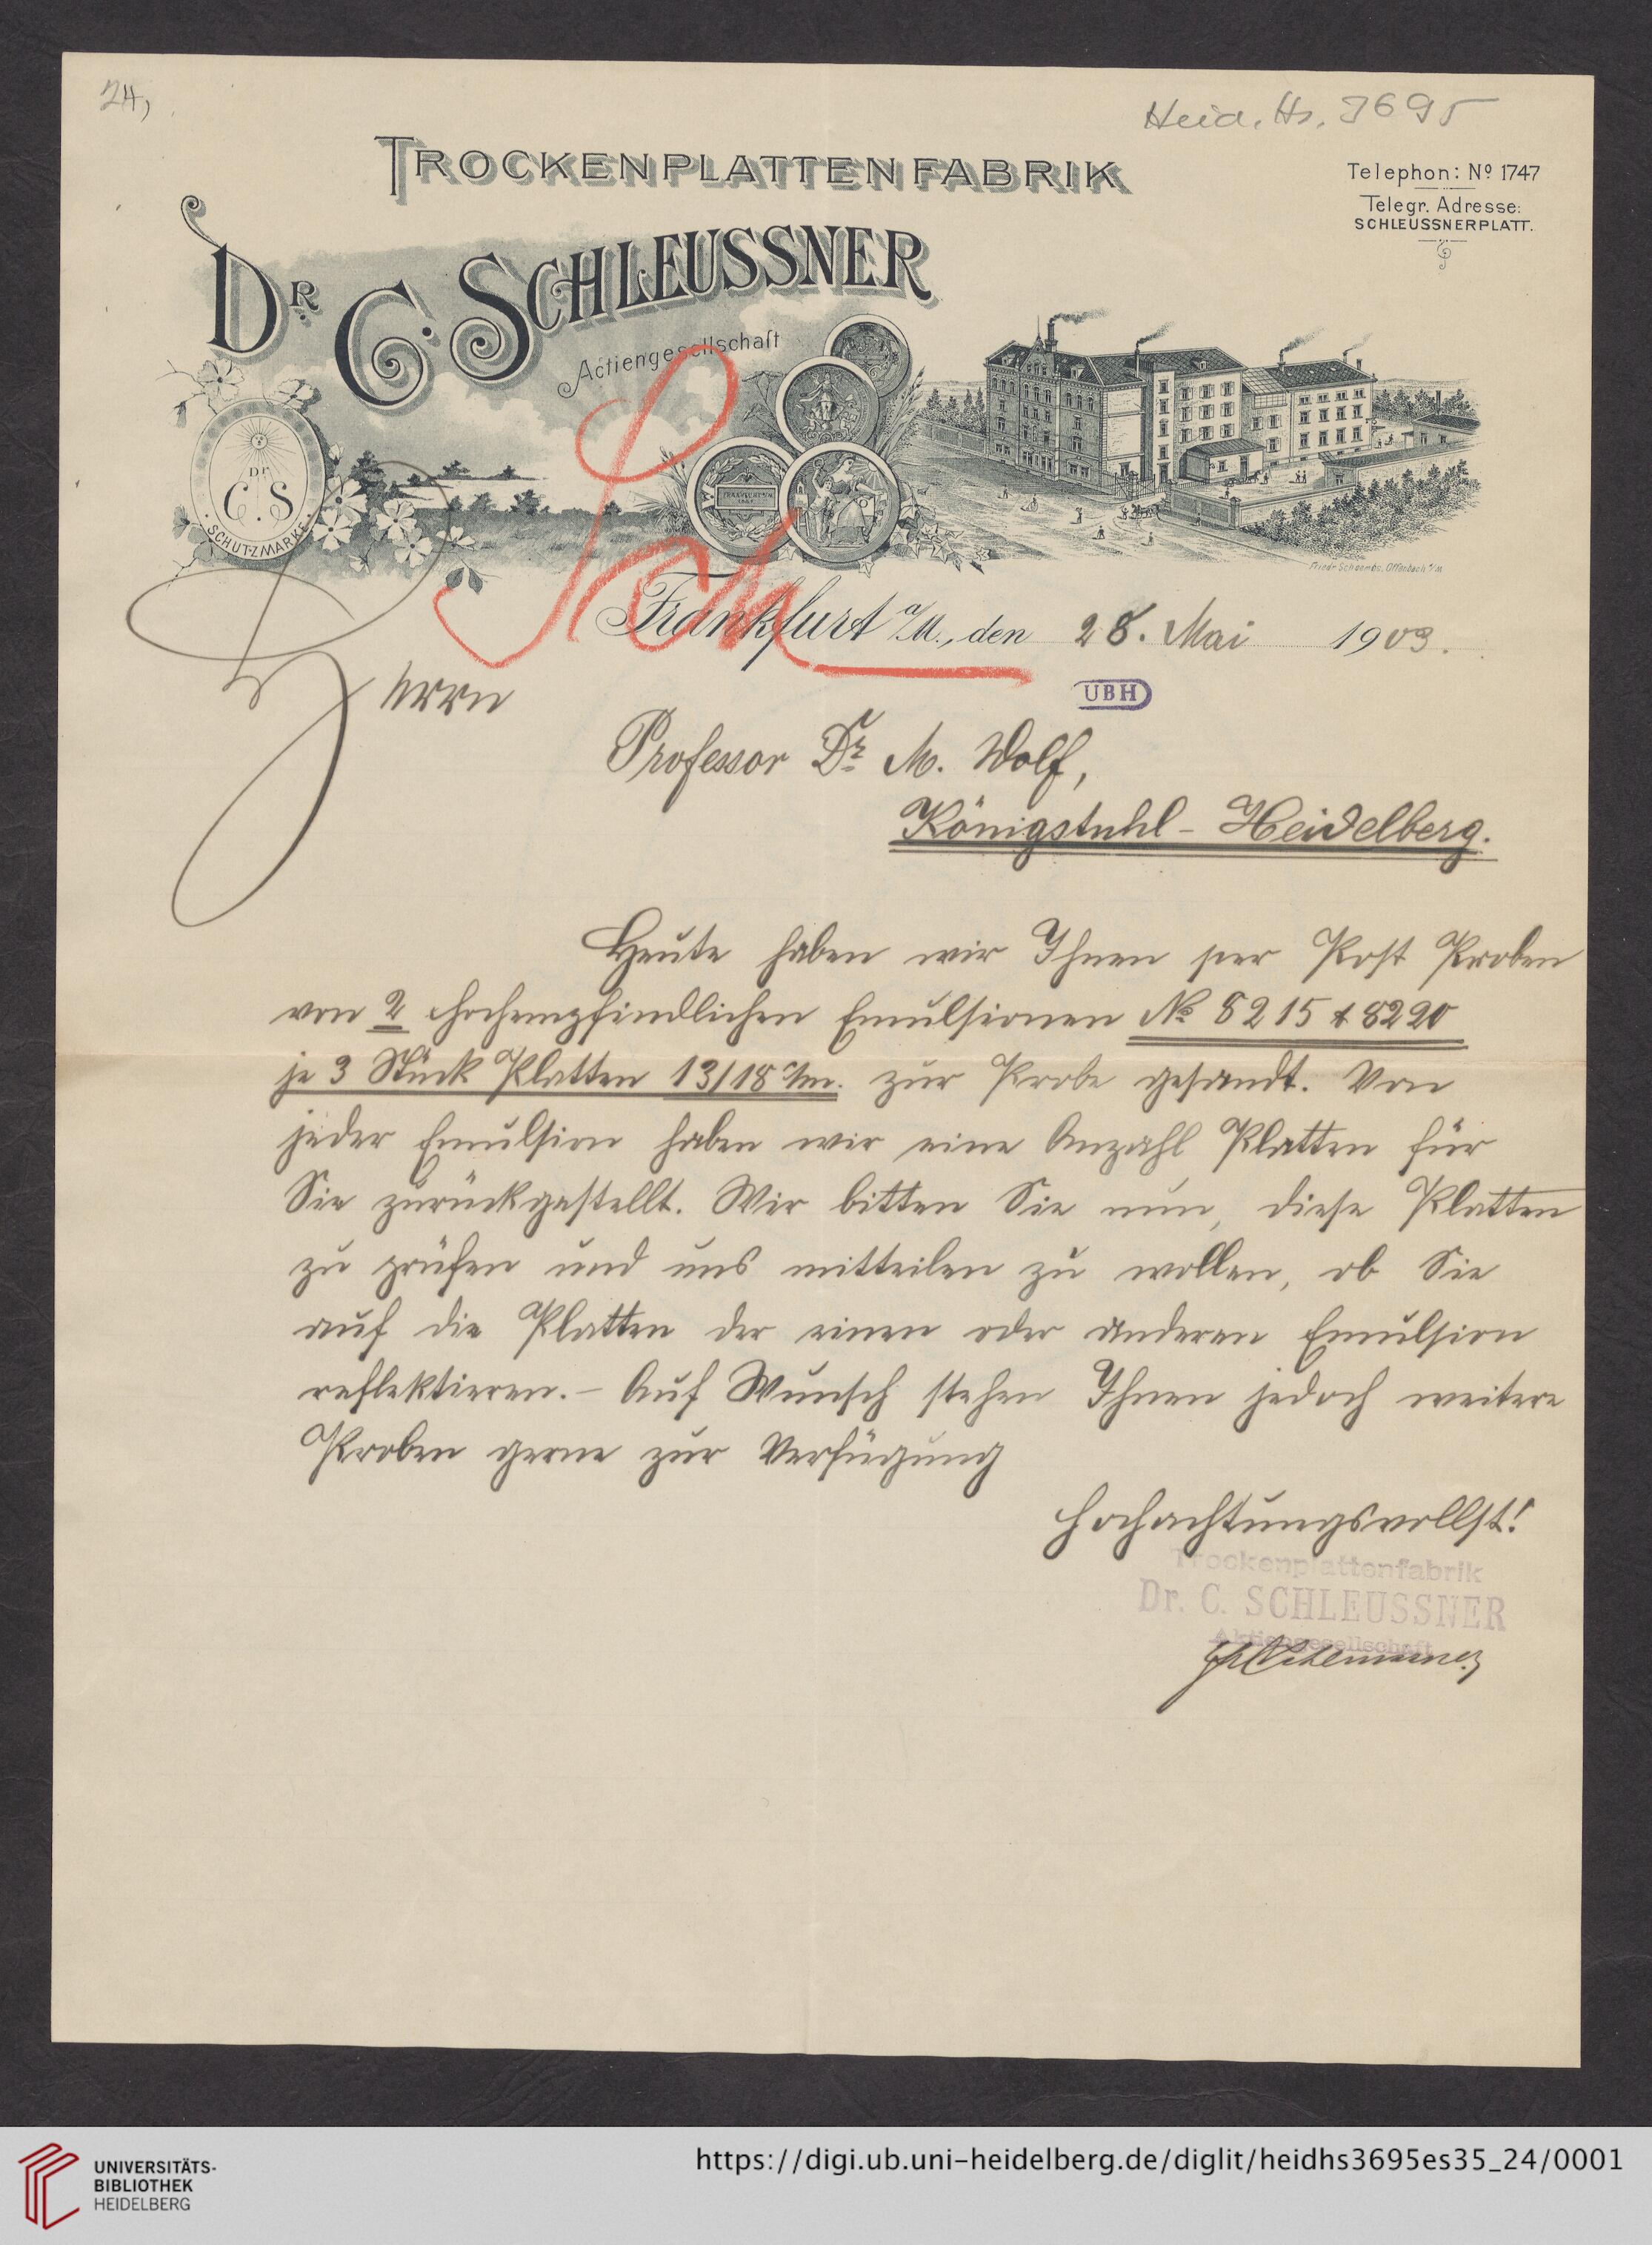 24,
Heid. Hs. 3695
TROCKENPLATTENFABRIK
Telephon: Nº 1747
Telegr. Adresse:
SCHLEUSSNERPLATT.
DR. C. SCHLEUSSNER
Actiengesellschaft
Dr.
C. S
SCHUTZMARKE
Friedr. Schoembs, Offenbach a/M
Frankfurt a/M., den 28. Mai 1903.
UBH
Herrn
Professor Dr. M. Wolf,
Königstuhl - Heidelberg.
Heute haben wir Ihnen per Post Proben
von 2 hochempfindlichen Emulsionen No 8215 & 8220
je 3 Stück Platten 13/18 c/m. zur Probe gesandt. Von
jeder Emulsion haben wir eine Anzahl Platten für
Sie zurückgestellt. Wir bitten Sie nun, diese Platten
zu prüfen und uns mitteilen zu wollen, ob Sie
auf die Platten der einen oder anderen Emulsion
reflektieren. - Auf Wunsch stehen Ihnen jedoch weitere
Proben gerne zur Verfügung
Hochachtungsvollst!
Trockenplattenfabrik
Dr. C. SCHLEUSSNER
Aktiengesellschaft
UNIVERSITÄTS-
BIBLIOTHEK
HEIDELBERG
https://digi.ub.uni-heidelberg.de/diglit/heidhs3695es35_24/0001